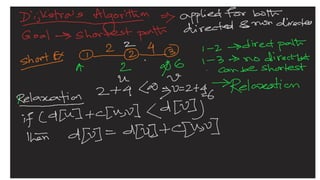 Dijkstra's Algorithm ⇒ applied for both
directed & non directed
Goal → shortest path
short Ex
2 2 4
1 2 3
1-2 → direct path
1-3 → no direct but
can be shortest
→ Relaxation
2 ∞ 6
u v
Relaxation 2+4 < ∞ ⇒ v = 2+4
=6
if (d[u] + c[u,v] < d[v])
then d[v] = d[u] + c[u,v]